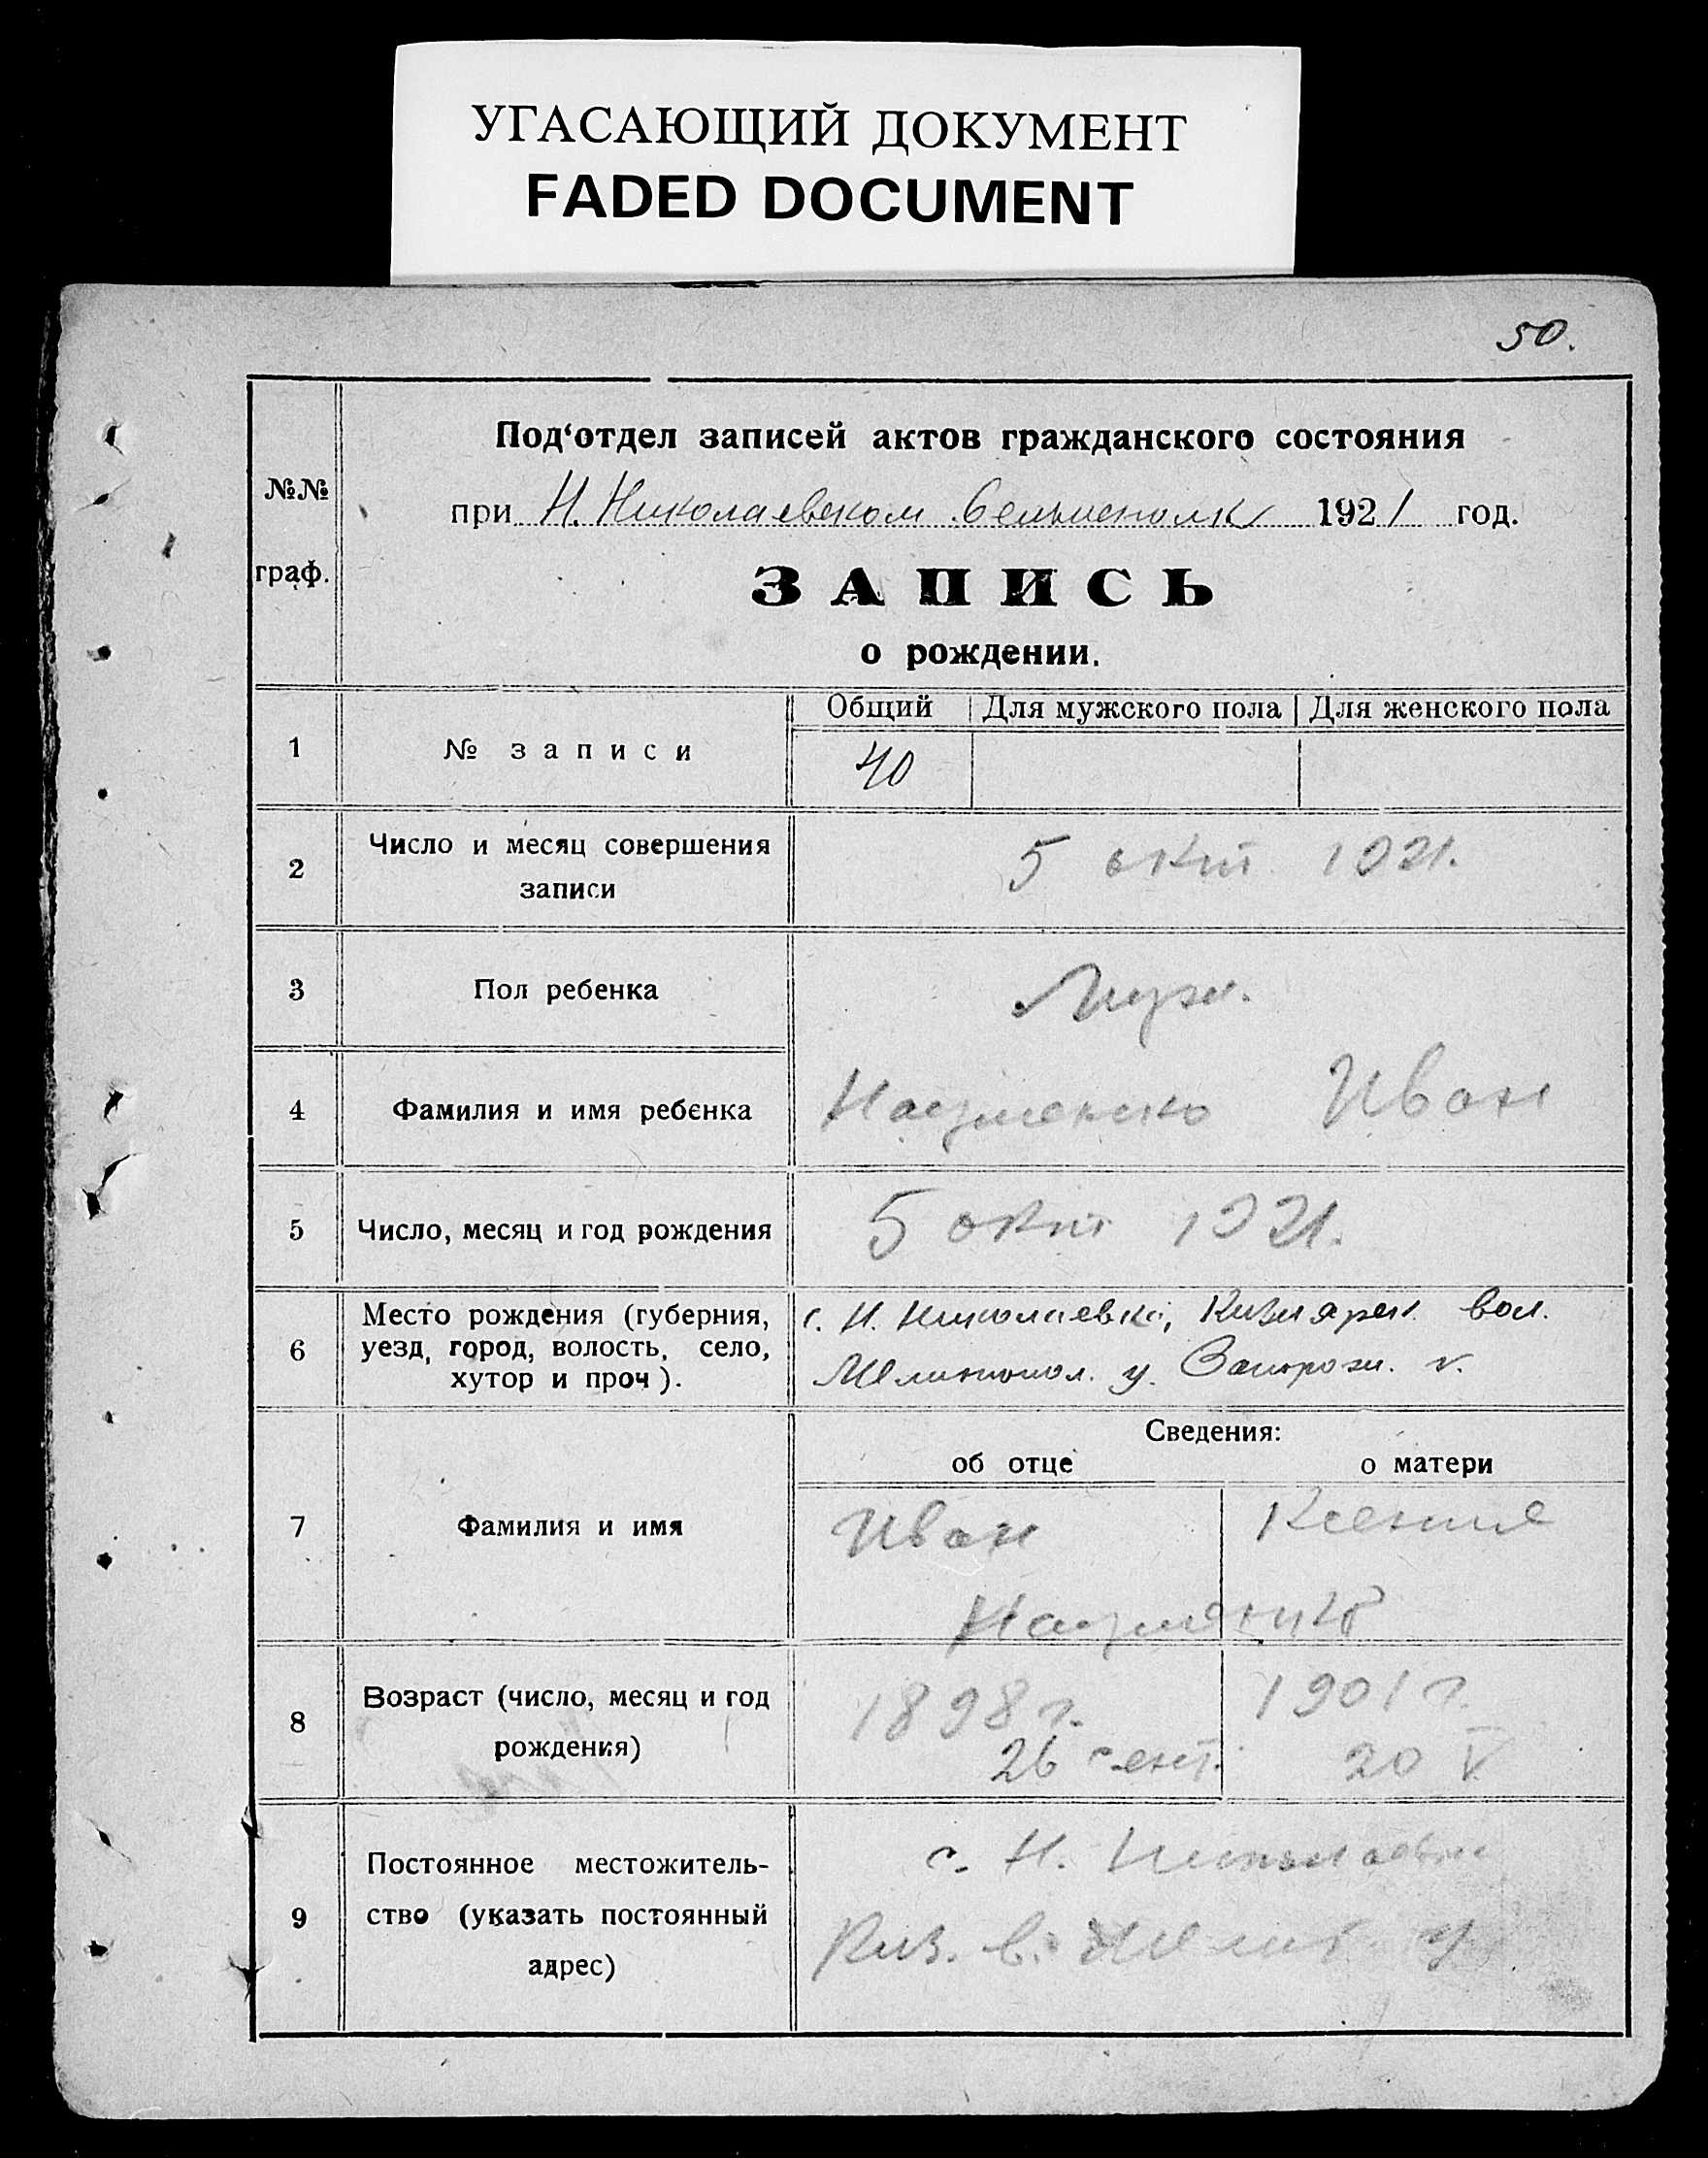 УГАСАЮЩИЙ ДОКУМЕНТ
FADED DOCUMENT
50.
№№
граф.
Под‘отдел записей актов гражданского состояния
при Н. Николаевском 1921 год.
ЗАПИСЬ
о рождении.
Общий Для мужского пола Для женского пола
1 № записи 40
2 Число и месяц совершения
записи
5 окт. 1921.
3 Пол ребенка Муж.
4 Фамилия и имя ребенка Науменко Иван
5 Число, месяц и год рождения 5 окт 1921.
6 Место рождения (губерния,
уезд, город, волость, село,
хутор и проч).
с. Н. Николаевка, Кизиярск. вол.
Мелитопол. у. Запорож. г.
Сведения:
об отце о матери
7 Фамилия и имя Иван Ксения
Науменко
8 Возраст (число, месяц и год
рождения)
1898 г. 1901 г.
26 сент. 20 V
9 Постоянное местожитель-
ство (указать постоянный
адрес)
с. Н. Николаевка
Киз. в. Мелит. у.